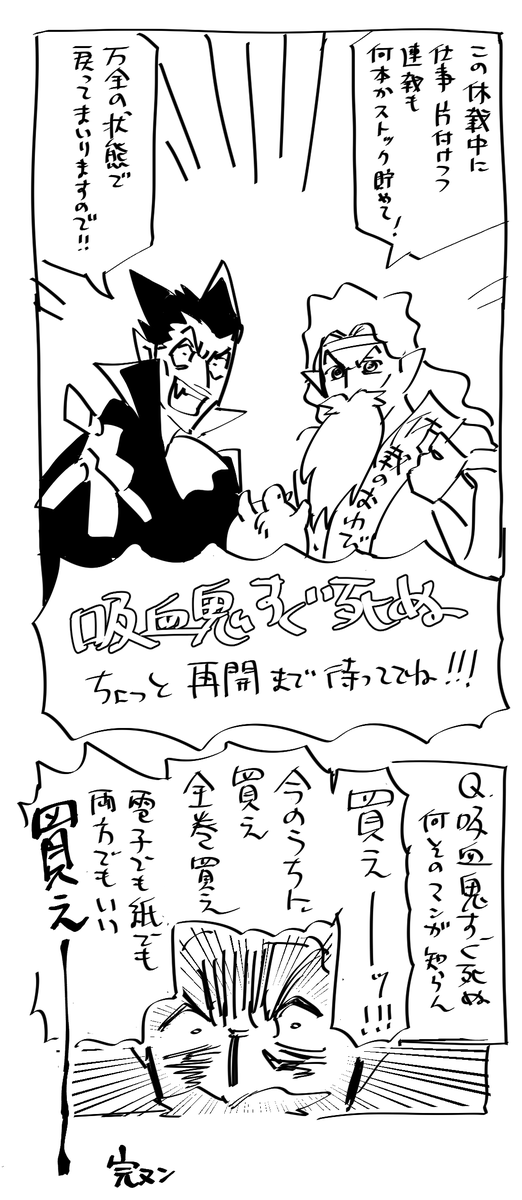 この休載中に
仕事片付けつつ
連載も
何本かストック貯めて!
万全の状態で
戻ってまいりますので!!
休載のおわび
吸血鬼すぐ死ぬ
ちょっと再開まで待っててね!!!
Q.吸血鬼すぐ死ぬ
何そのマンガ知らん
買えーーッ!!!
今のうちに
買え
全巻買え
電子でも紙でも
両方でもいい
買えーー
完ヌン